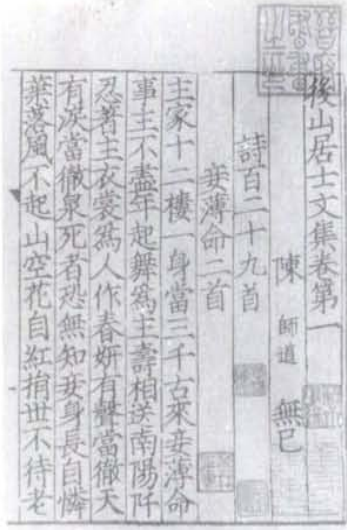 後山居士文集卷第一
陳師道無已
詩百二十九首
妾薄命二首
主家十二樓一身當三千古來妾薄命
事主不盡年起舞爲主壽相送南陽阡
忍著主衣裳爲人作春妍有聲當徹天
有淚當徹泉死者恐無知妾身長自憐
葉落風不起山空花自紅捐世不待老